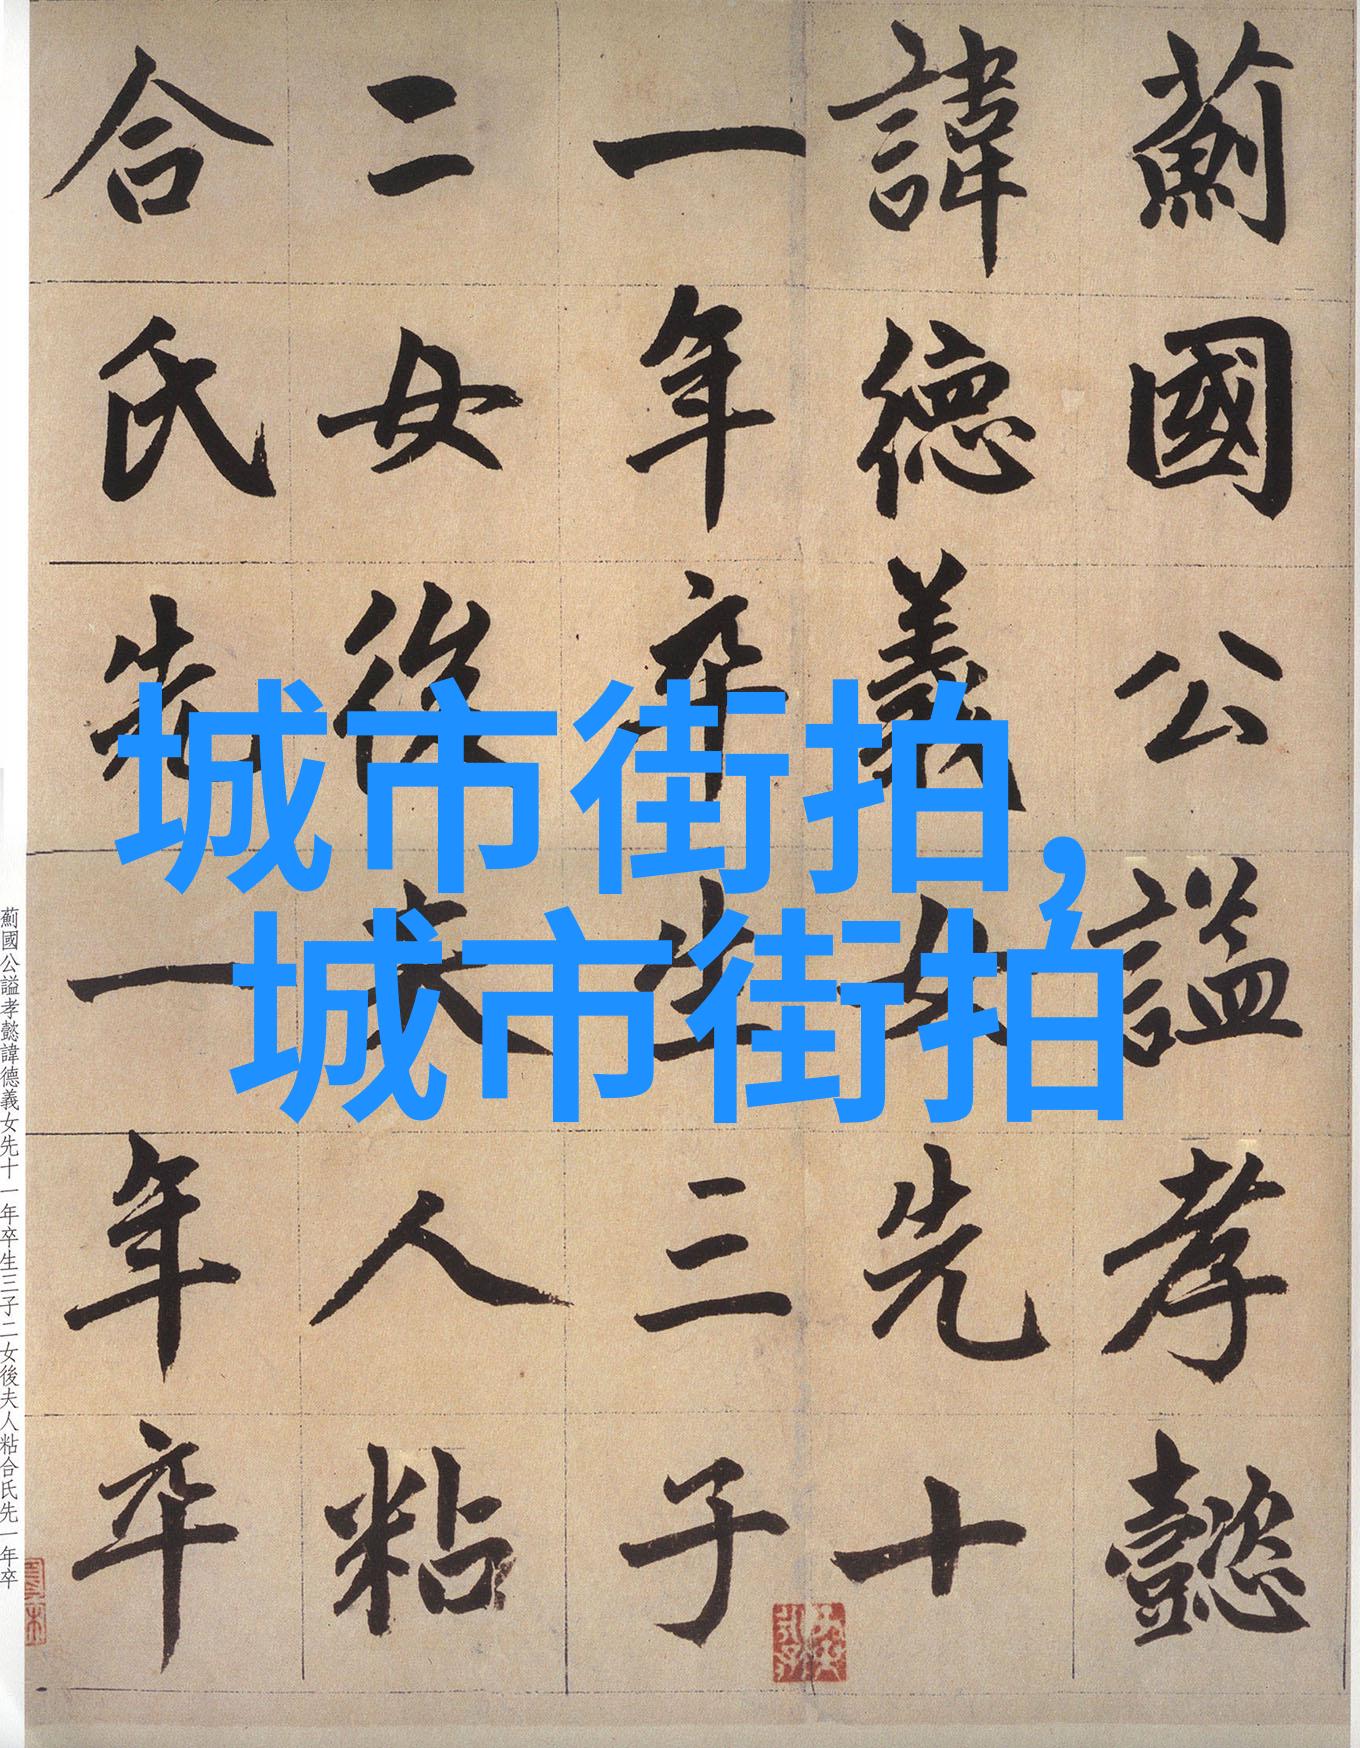 薊國公謚孝懿
諱德義女先十
一年卒生三子
二女後夫人粘
合氏先一年卒
城市街拍,
城市街拍
薊國公謚孝懿諱德義女先十一年卒生三子二女後夫人粘合氏先一年卒